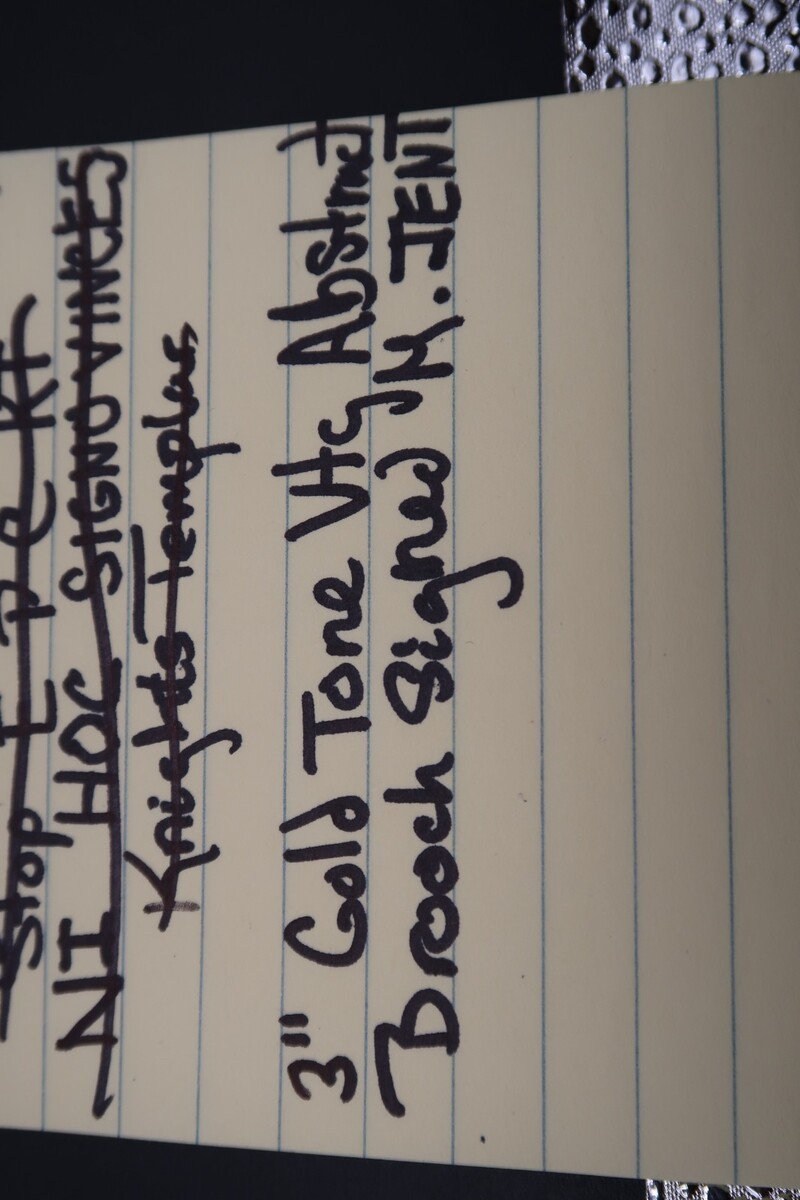 Stop
NI HOC SIGNO VINCES
Knights Templar
3" Gold Tone Vtg Abstract
Brooch Signed M. JENT